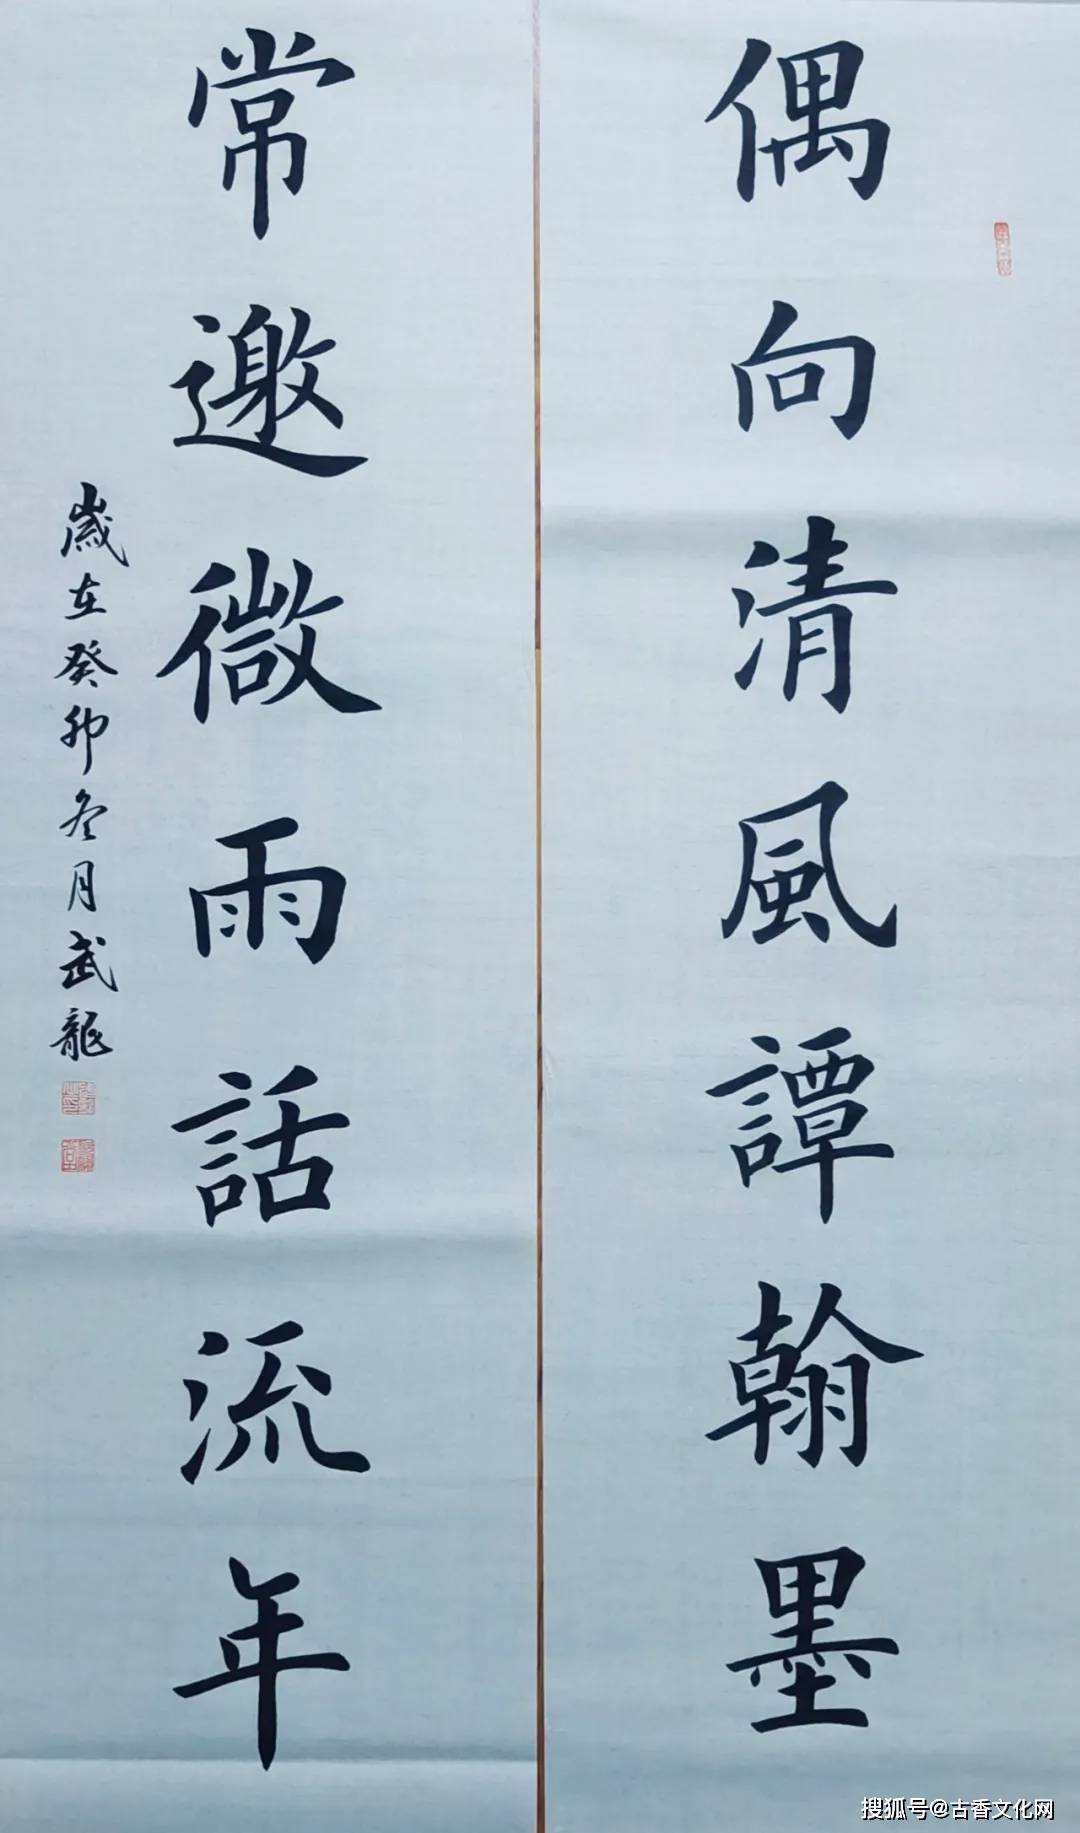 偶向清風譚翰墨
常邀微雨話流年
歲在癸卯冬月武龍
搜狐号@古香文化网